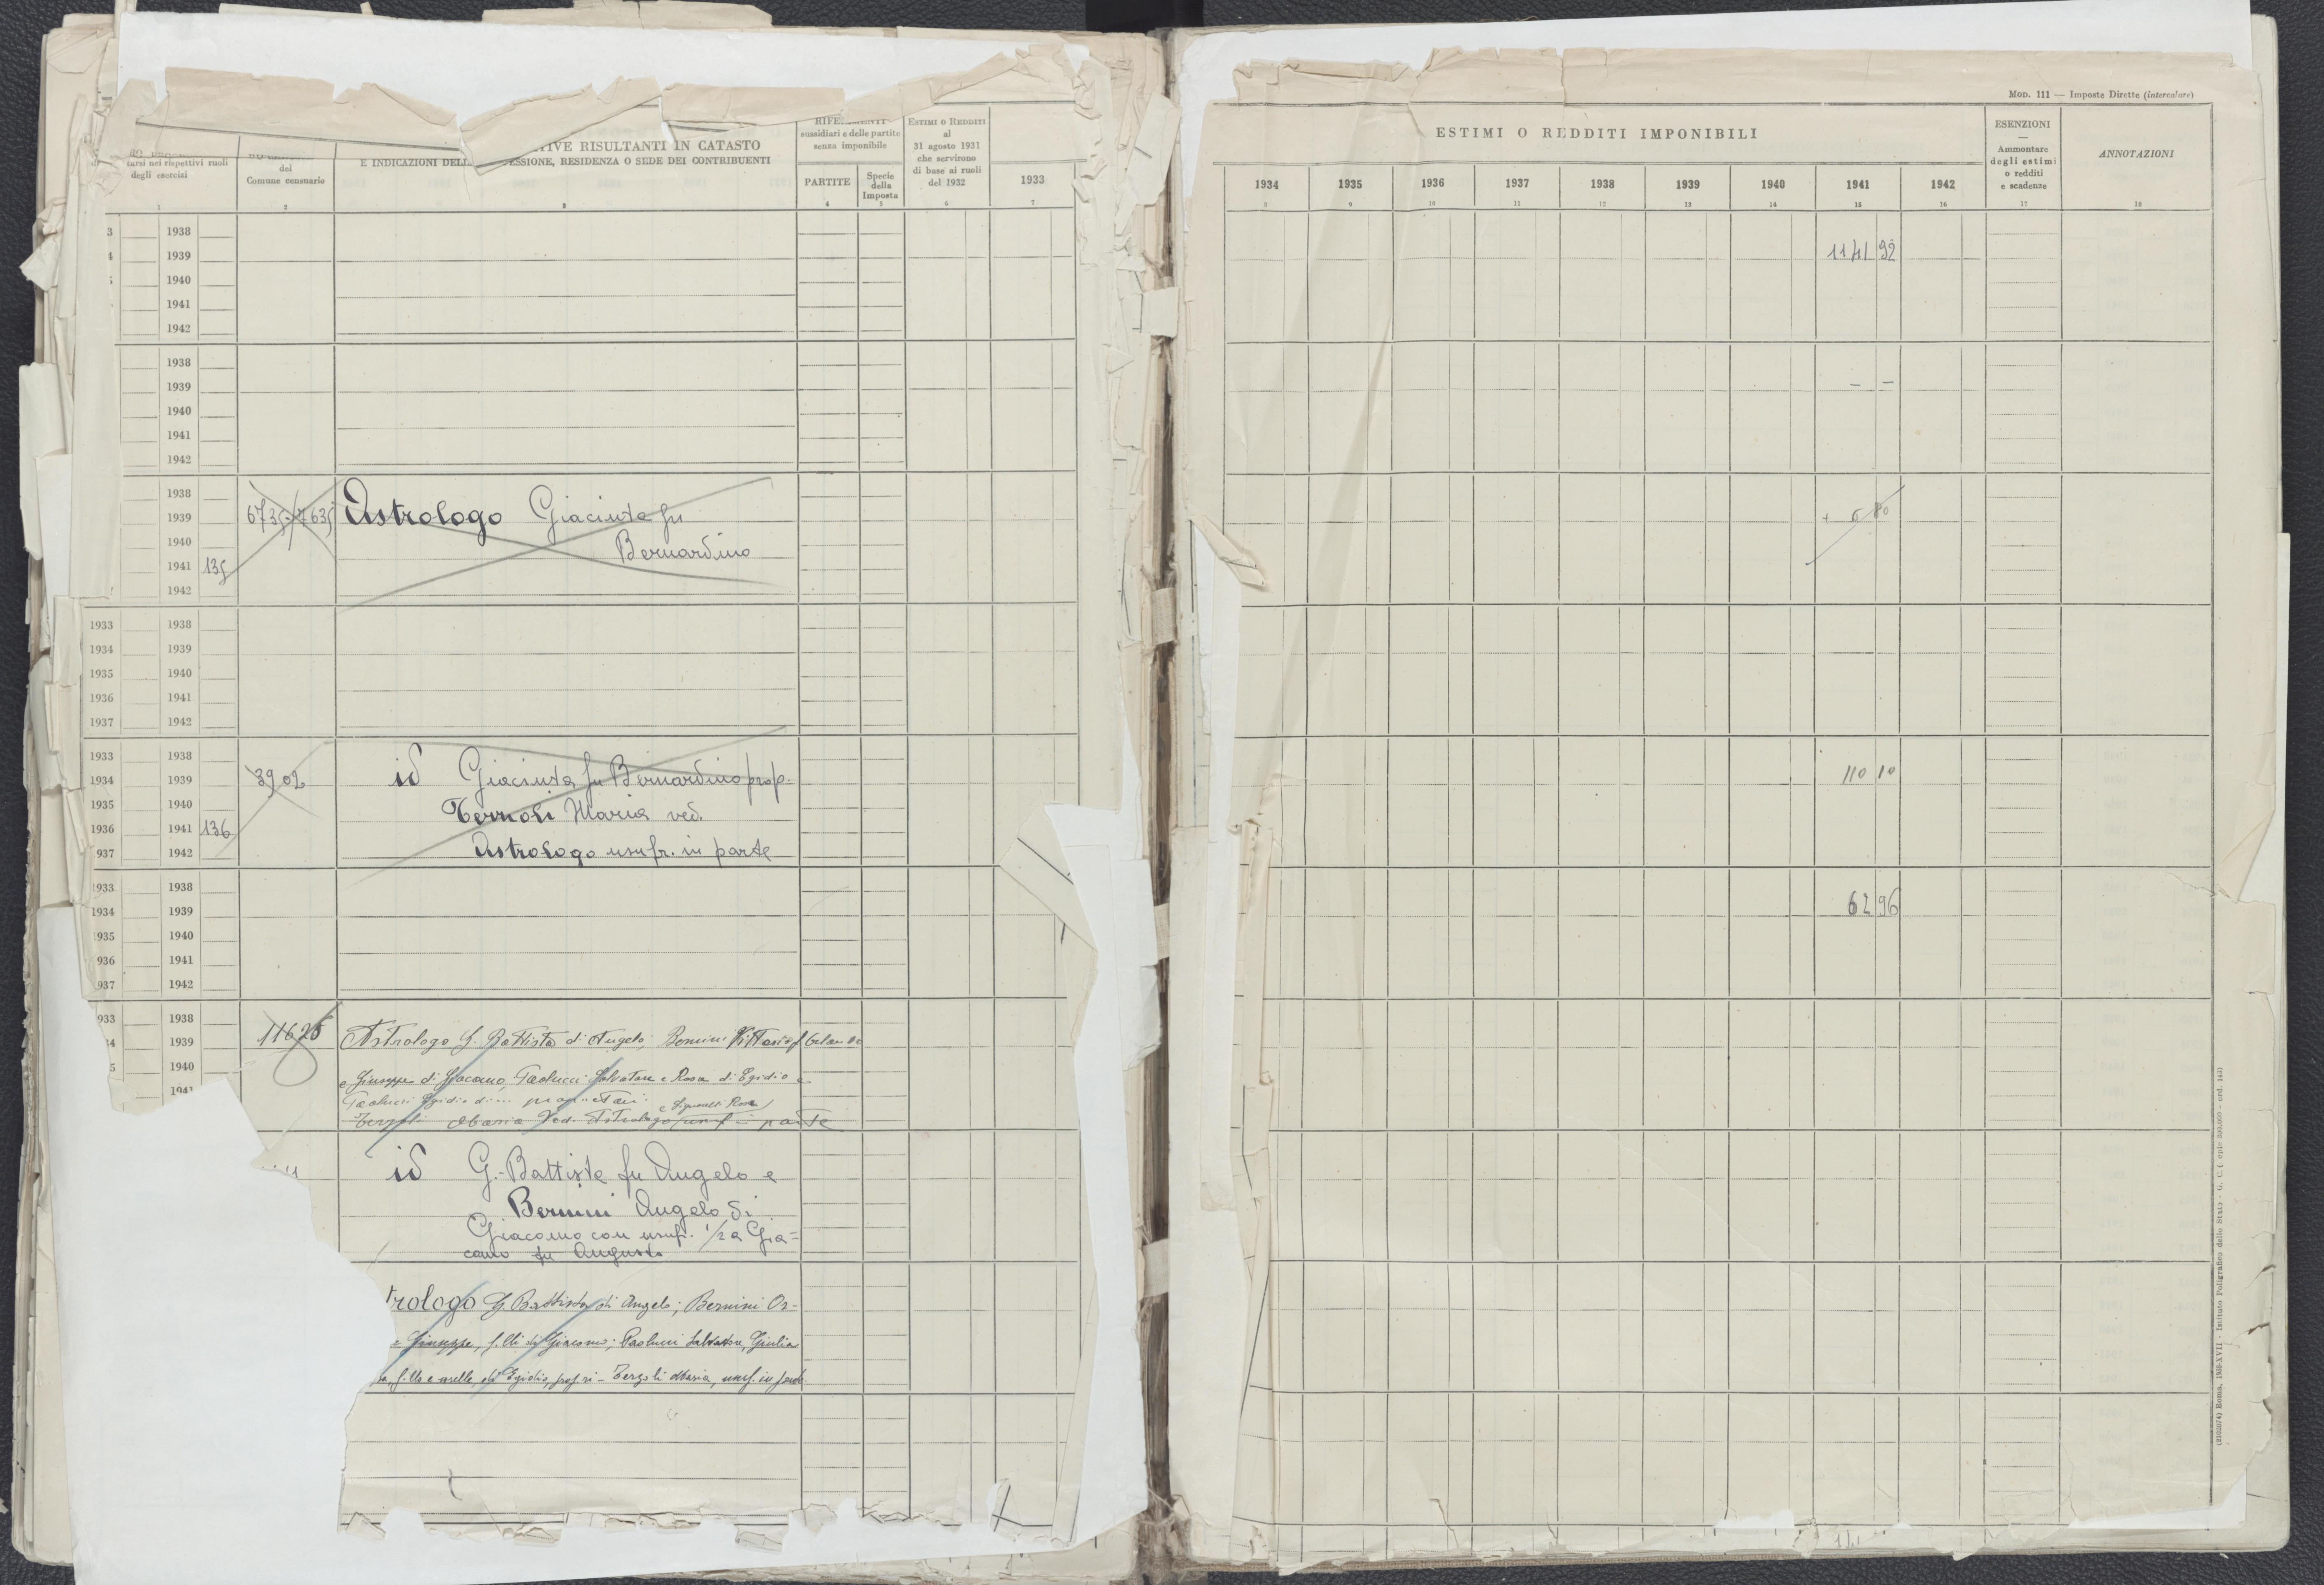 TIVE RISULTANTI IN CATASTO
E INDICAZIONI DELL
ESSIONE, RESIDENZA O SEDE DEI CONTRIBUENTI
tarsi nei rispettivi ruoli
degli esercizi
del
Comune censuario
sussidiari e delle partite
senza imponibile
PARTITE
Specie
della
Imposta
ESTIMI O REDDITI
al
31 agosto 1931
che servirono
di base ai ruoli
del 1932
1933
1 2 3 4 5 6 7
3 1938
1939
1940
1941
1942
1938
1939
1940
1941
1942
1938
6735 7635 Astrologo Giacinta fu
1939
1940
Bernardino
1941 135
1942
1933 1938
1934 1939
1935 1940
1936 1941
1937 1942
1933 1938
1934 1939 3902 id Giacinta fu Bernardino prop.
1935 1940
Maria ved.
1936 1941 136
937 1942 Astrologo usufr. in parte
933 1938
934 1939
935 1940
936 1941
937 1942
933 1938
11625 Astrologo G. Battista di Angelo; Bernini
1939
5 1940 e Giuseppe di Giacomo, Paolucci Salvatore e Rosa di Egidio e
1941 Paolucci Egidio di ...
Maria Ved. Astrologo usuf in parte
id G. Battista fu Angelo e
Bernini Angelo di
Giacomo con usuf. 1/2 a Gia=
como fu Augusto
trologo G. Battista di Angelo; Bernini
e Giuseppe, f.lli di Giacomo; Paolucci Salvatore, Giulia
f.llo e sorelle di Egidio, Maria, usuf. in parte
MOD. 111 — Imposte Dirette (intercalare)
ESTIMI O REDDITI IMPONIBILI
ESENZIONI
—
Ammontare
degli estimi
o redditi
e scadenze
ANNOTAZIONI
1934 1935 1936 1937 1938 1939 1940 1941 1942
8 9 10 11 12 13 14 15 16 17 18
1141 92
– –
+ 6 80
110 10
62 96